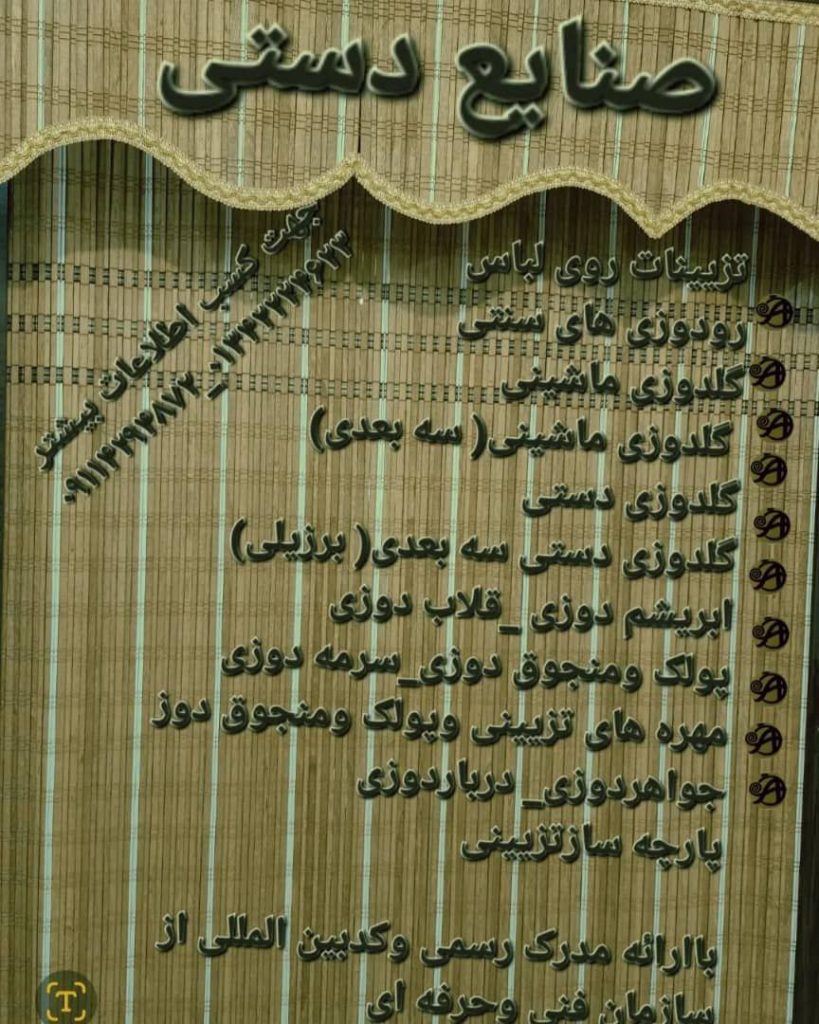 صنایع دستی
جهت کسب اطلاعات بیشتر
تزیینات روی لباس
رودوزی های سنتی
گلدوزی ماشینی
گلدوزی ماشینی( سه بعدی)
گلدوزی دستی
گلدوزی دستی سه بعدی( برزیلی)
ابریشم دوزی _قلاب دوزی
پولک ومنجوق دوزی_سرمه دوزی
مهره های تزیینی وپولک ومنجوق دوز
جواهردوزی_ درباردوزی
پارچه سازتزیینی
باارائه مدرک رسمی وکدبین المللی از
سازمان فنی وحرفه ای